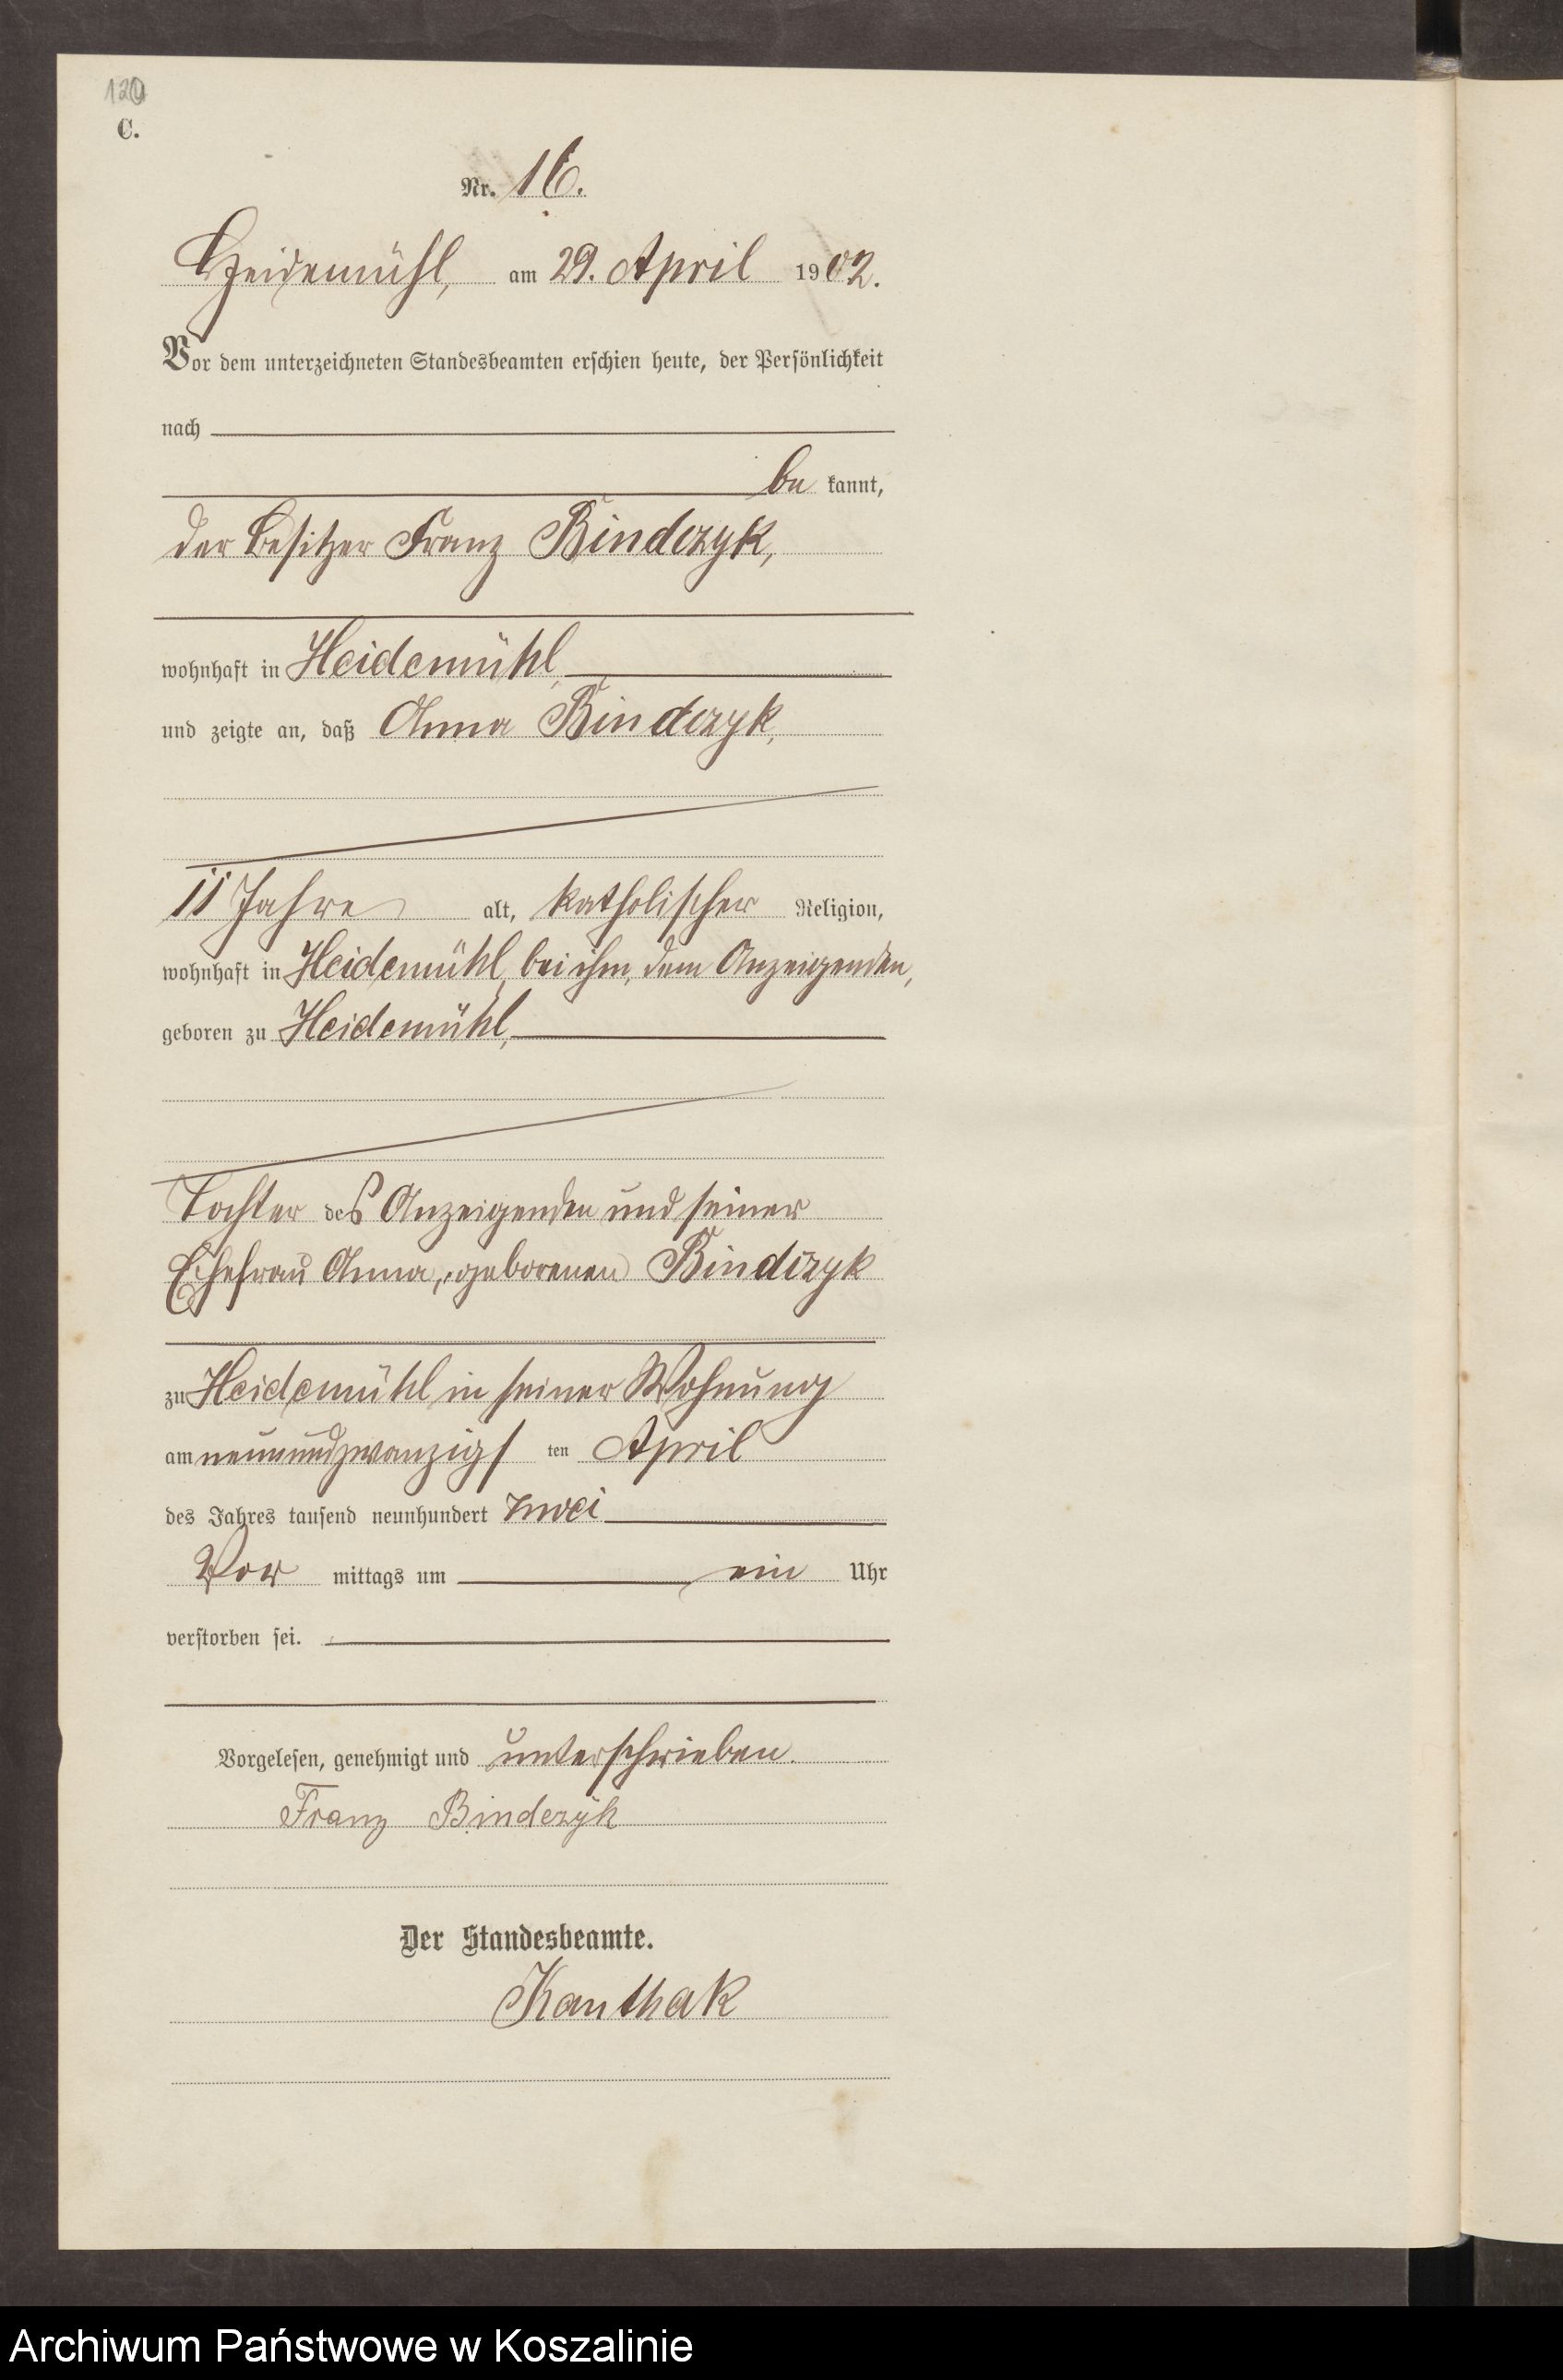 120
C.
Nr. 16.
Heidemühl, am 29. April 1902.
Vor dem unterzeichneten Standesbeamten erschien heute, der Persönlichkeit
nach
be kannt,
der Besitzer Franz Bindczyk,
wohnhaft in Heidemühl,
und zeigte an, daß Anna Bindczyk,
11 Jahre alt, katholischer Religion,
wohnhaft in Heidemühl, bei ihm, dem Anzeigenden,
geboren zu Heidemühl,
Tochter des Anzeigenden und seiner
Ehefrau Anna, geborenen Bindczyk
zu Heidemühl in seiner Wohnung
am neunundzwanzigs ten April
des Jahres tausend neunhundert zwei
Vor mittags um ein Uhr
verstorben sei.
Vorgelesen, genehmigt und unterschrieben.
Franz Bindczyk
Der Standesbeamte.
Kanthak
Archiwum Państwowe w Koszalinie